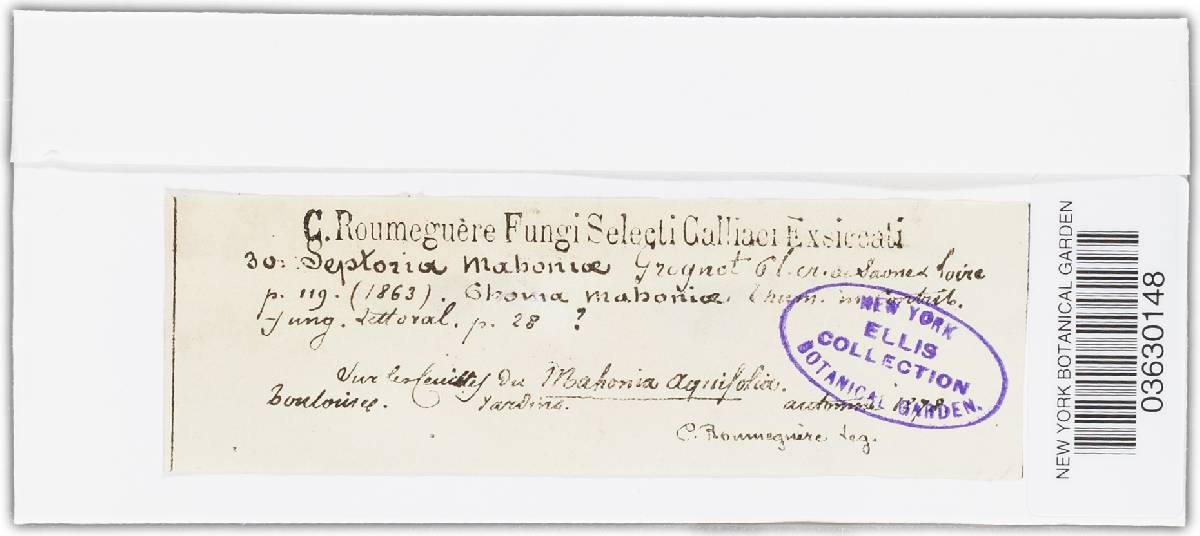 C. Roumeguère Fungi Selecti Galliaci Exsiccati
30. Septoria Mahoniæ Grognot Pl. cr. de Saone & Loire
p. 119. (1863). Phoma Mahoniæ. Thum. in Contrib.
Fung. Littoral. p. 28 ?
Sur les feuilles du Mahonia Aquifolia.
Toulouse. Jardins. automne 1878.
C. Roumeguère Leg.
NEW YORK
ELLIS
COLLECTION
BOTANICAL GARDEN.
NEW YORK BOTANICAL GARDEN
03630148